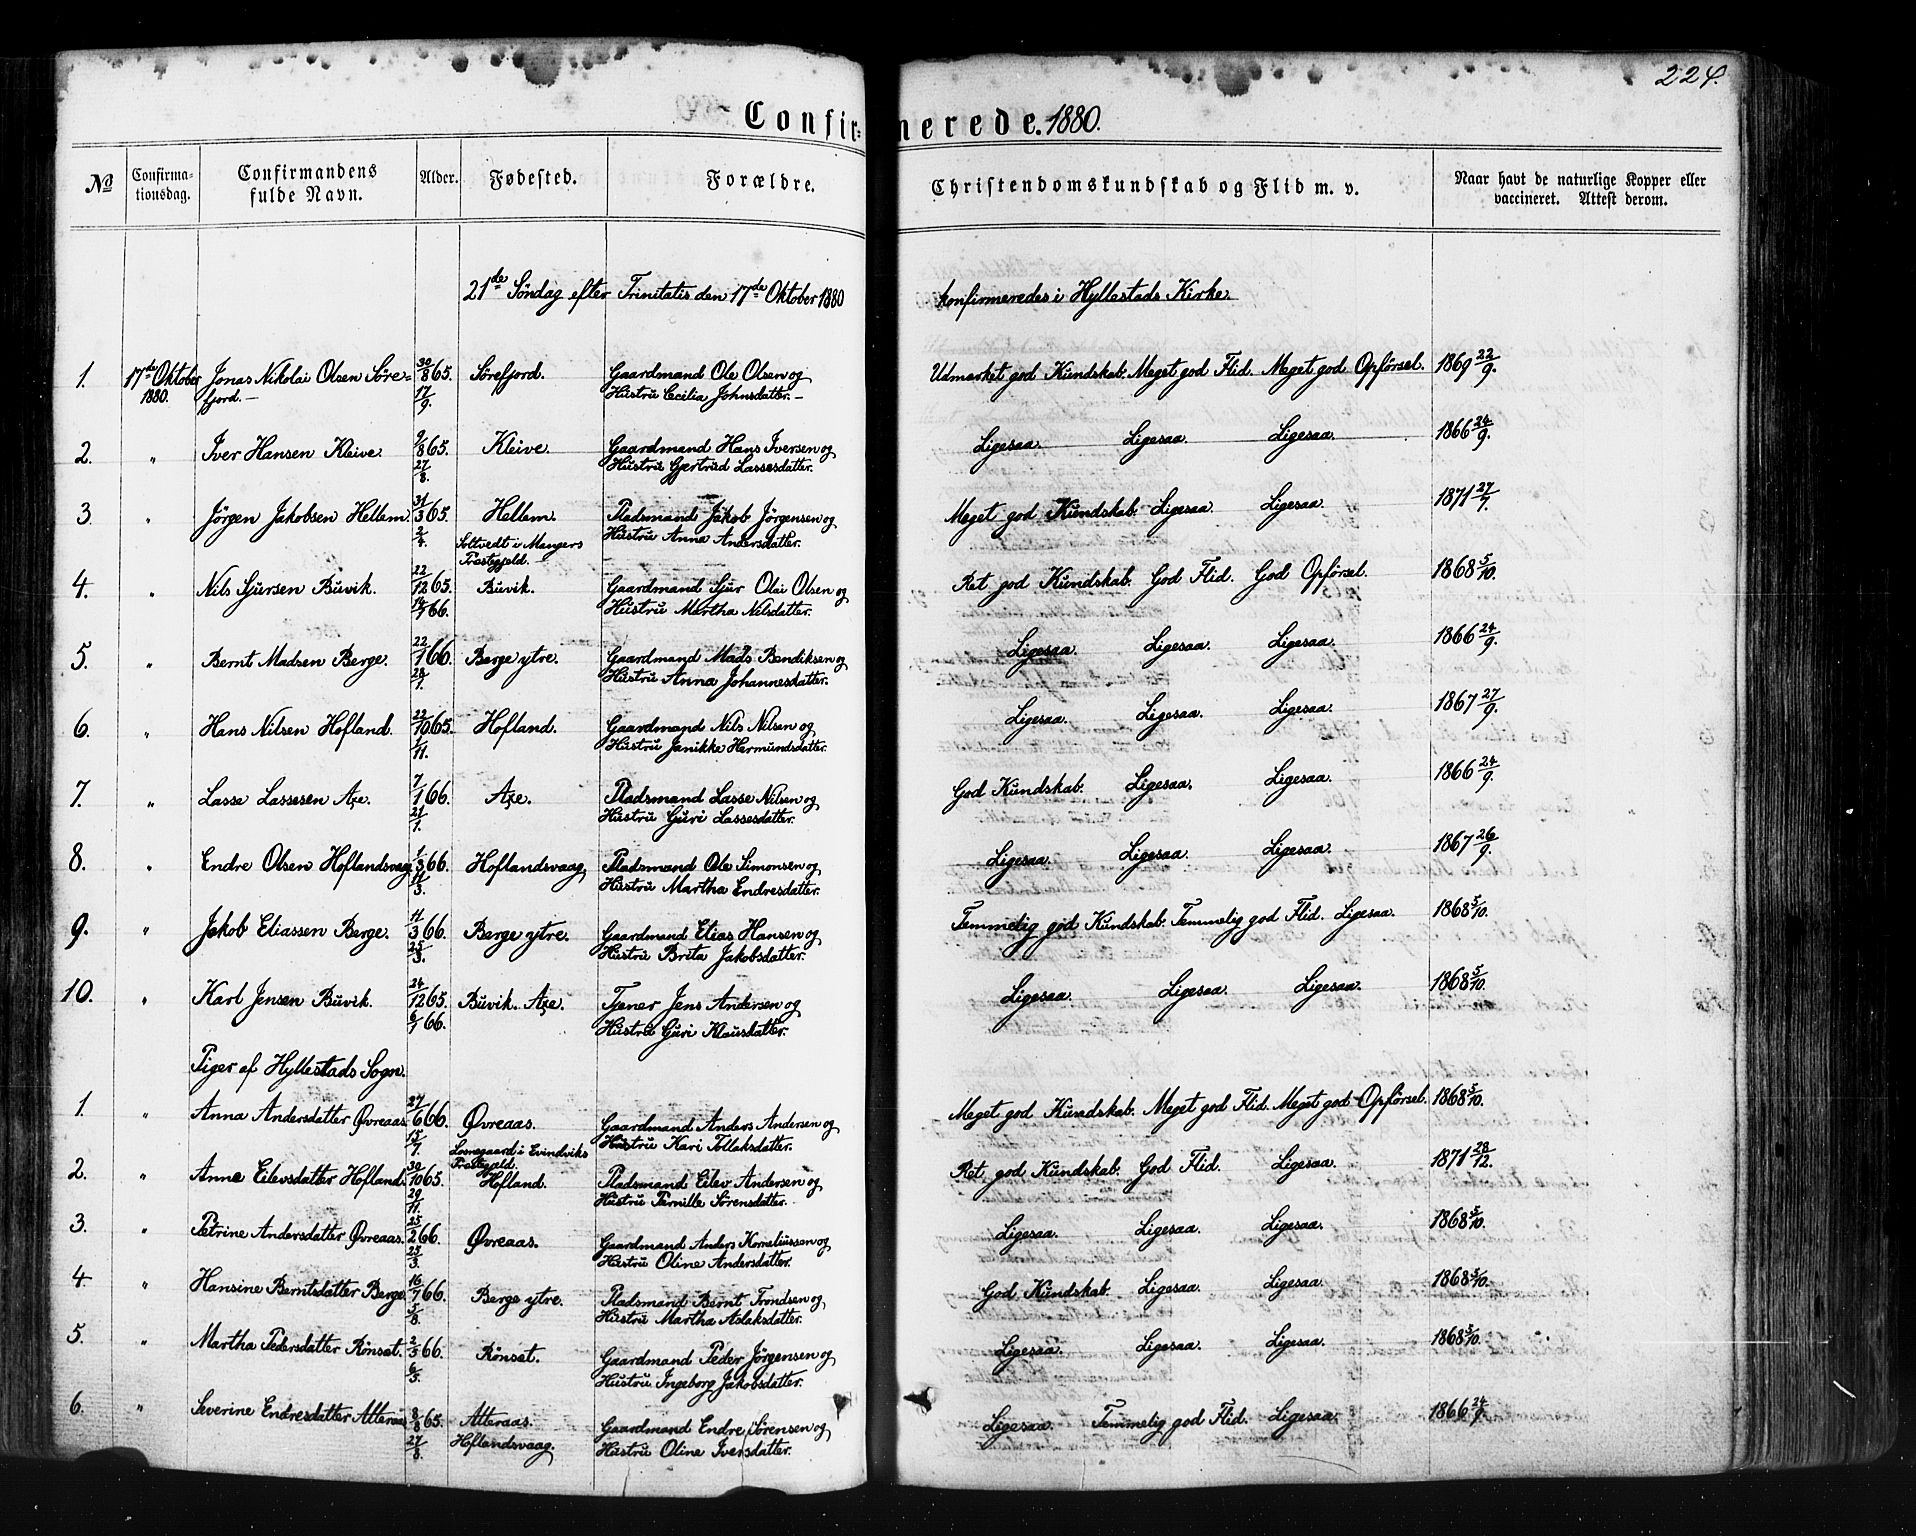 224.
Confirmerede. 1880.
No
Confirma-
tionsdag.
Confirmandens
fulde Navn.
Alder.
Fødested.
Forældre.
Christendomskundskab og Flid m. v.
Naar havt de naturlige Kopper eller
vaccineret. Attest derom.
21de Söndag efter Trinitatis den 17de Oktober 1880 konfirmeredes i Hyllestads Kirke.
1. 17de Oktober Jonas Nikolai Olsen Söre- 30/8 65. Sörefjord. Gaardmand Ole Olsen og Udmærket god Kundskab. Meget god Flid. Meget god Opförsel. 1869 22/9.
1880. fjord.— 17/9. Hustru Cecilia Johnsdatter.—
2. " Iver Hansen Kleive. 9/8 65. Kleive. Gaardmand Hans Iversen og Ligesaa. Ligesaa. Ligesaa. 1866 24/9.
27/8. Hustru Gjertrud Lassesdatter.
3. " Jörgen Jakobsen Hellem. 31/3 65. Hellem. Pladsmand Jakob Jörgensen og Meget god Kundskab. Ligesaa. Ligesaa. 1871 27/7.
2/4. Soltvedt i Mangers Hustru Anna Andersdatter.
Præstegjeld.
4. " Nils Sjursen Buvik. 22/12 65. Buvik. Gaardmand Sjur Olai Olsen og Ret god Kundskab. God Flid. God Opförsel. 1868 5/10.
14/1 66. Hustru Martha Nilsdatter.
5. " Bernt Madsen Berge. 22/1 66. Berge ytre. Gaardmand Mads Bendiksen og Ligesaa. Ligesaa. Ligesaa. 1866 24/9.
28/1. Hustru Anna Johannesdatter.
6. " Hans Nilsen Hofland. 22/10 65. Hofland. Gaardmand Nils Nilsen og Ligesaa. Ligesaa. Ligesaa. 1867 27/9.
1/11. Hustru Janikke Harmundsdatter.
7. " Lasse Lassesen Axe. 7/1 66. Axe. Pladsmand Lasse Nilsen og God Kundskab. Ligesaa. Ligesaa. 1866 24/9.
21/1. Hustru Guri Lassesdatter.
8. " Endre Olsen Hoflandsvaag. 1/3 66. Hoflandsvaag. Pladsmand Ole Simonsen og Ligesaa. Ligesaa. Ligesaa. 1867 26/9.
11/3. Hustru Martha Endresdatter.
9. " Jakob Eliassen Berge. 11/3 66. Berge ytre. Gaardmand Elias Hansen og Temmelig god Kundskab. Temmelig god Flid. Ligesaa. 1868 5/10.
25/3. Hustru Brita Jakobsdatter.
10. " Karl Jensen Buvik. 24/12 65. Buvik. Axe. Tjener Jens Andersen og Ligesaa. Ligesaa. Ligesaa. 1868 5/10.
6/1 66. Hustru Guri Klausdatter.
Piger af Hyllestads Sogn.
1. " Anna Andersdatter Øvreaas. 27/6 66. Øvreaas. Gaardmand Anders Andersen og Meget god Kundskab. Meget god Flid. Meget god Opförsel. 1868 5/10.
15/7. Hustru Kari Tollaksdatter.
Losnegaard i Evindviks
Præstegjeld.
2. " Anne Eilevsdatter Hofland. 30/10 65. Hofland. Pladsmand Eilev Andersen og Ret god Kundskab. God Flid. Ligesaa. 1871 28/12.
29/11. Hustru Pernille Sörensdatter.
3. " Petrine Andersdatter Øvreaas. 25/2 66. Øvreaas. Gaardmand Anders Korneliussen og Ligesaa. Ligesaa. Ligesaa. 1868 5/10.
25/3. Hustru Oline Andersdatter.
4. " Hansine Berntsdatter Berge. 16/7 66. Berge ytre. Pladsmand Bernt Trondsen og God Kundskab. Ligesaa. Ligesaa. 1868 5/10.
5/8. Hustru Martha Aslaksdatter.
5. " Martha Pedersdatter Rönset. 2/3 66. Rönset. Gaardmand Peder Jörgensen og Ligesaa. Ligesaa. Ligesaa. 1868 5/10.
6/5. Hustru Ingeborg Jakobsdatter.
6. " Severine Endresdatter Atteraas 8/8 65. Atteraas. Gaardmand Endre Sörensen og Ligesaa. Temmelig god Flid. Ligesaa. 1866 24/9.
27/8. Hoflandsvaag. Hustru Oline Iversdatter.